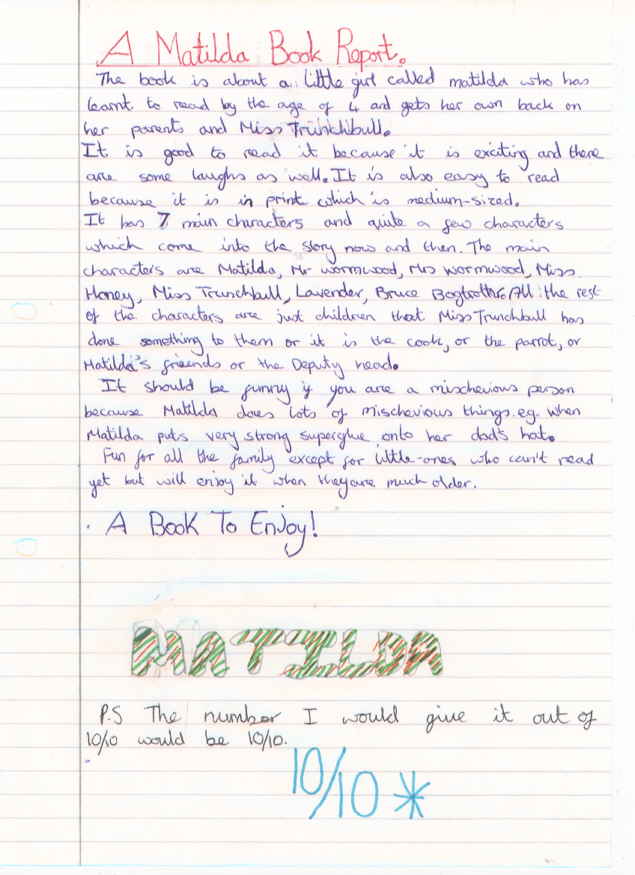 A Matilda Book Report.
The book is about a little girl called matilda who has
learnt to read by the age of 4 and gets her own back on
her parents and Miss Trunchbull.
It is good to read it because it is exciting and there
are some laughs as well. It is also easy to read
because it is in print which is medium-sized.
It has 7 main characters and quite a few characters
which come into the story now and then. The main
characters are Matilda, Mr wormwood, Mrs wormwood, Miss
Honey, Miss Trunchbull, Lavender, Bruce Bogtrotter. All the rest
of the characters are just children that Miss Trunchbull has
done something to them or it is the cook, or the parrot, or
Matilda's friends or the Deputy head.
It should be funny if you are a mischevious person
because Matilda does lots of mischevious things. eg. when
Matilda puts very strong superglue onto her dad's hat.
Fun for all the family except for little-ones who can't read
yet but will enjoy it when they are much older.
A Book To Enjoy!
MATILDA
P.S The number I would give it out of
10/10 would be 10/10.
10/10 *